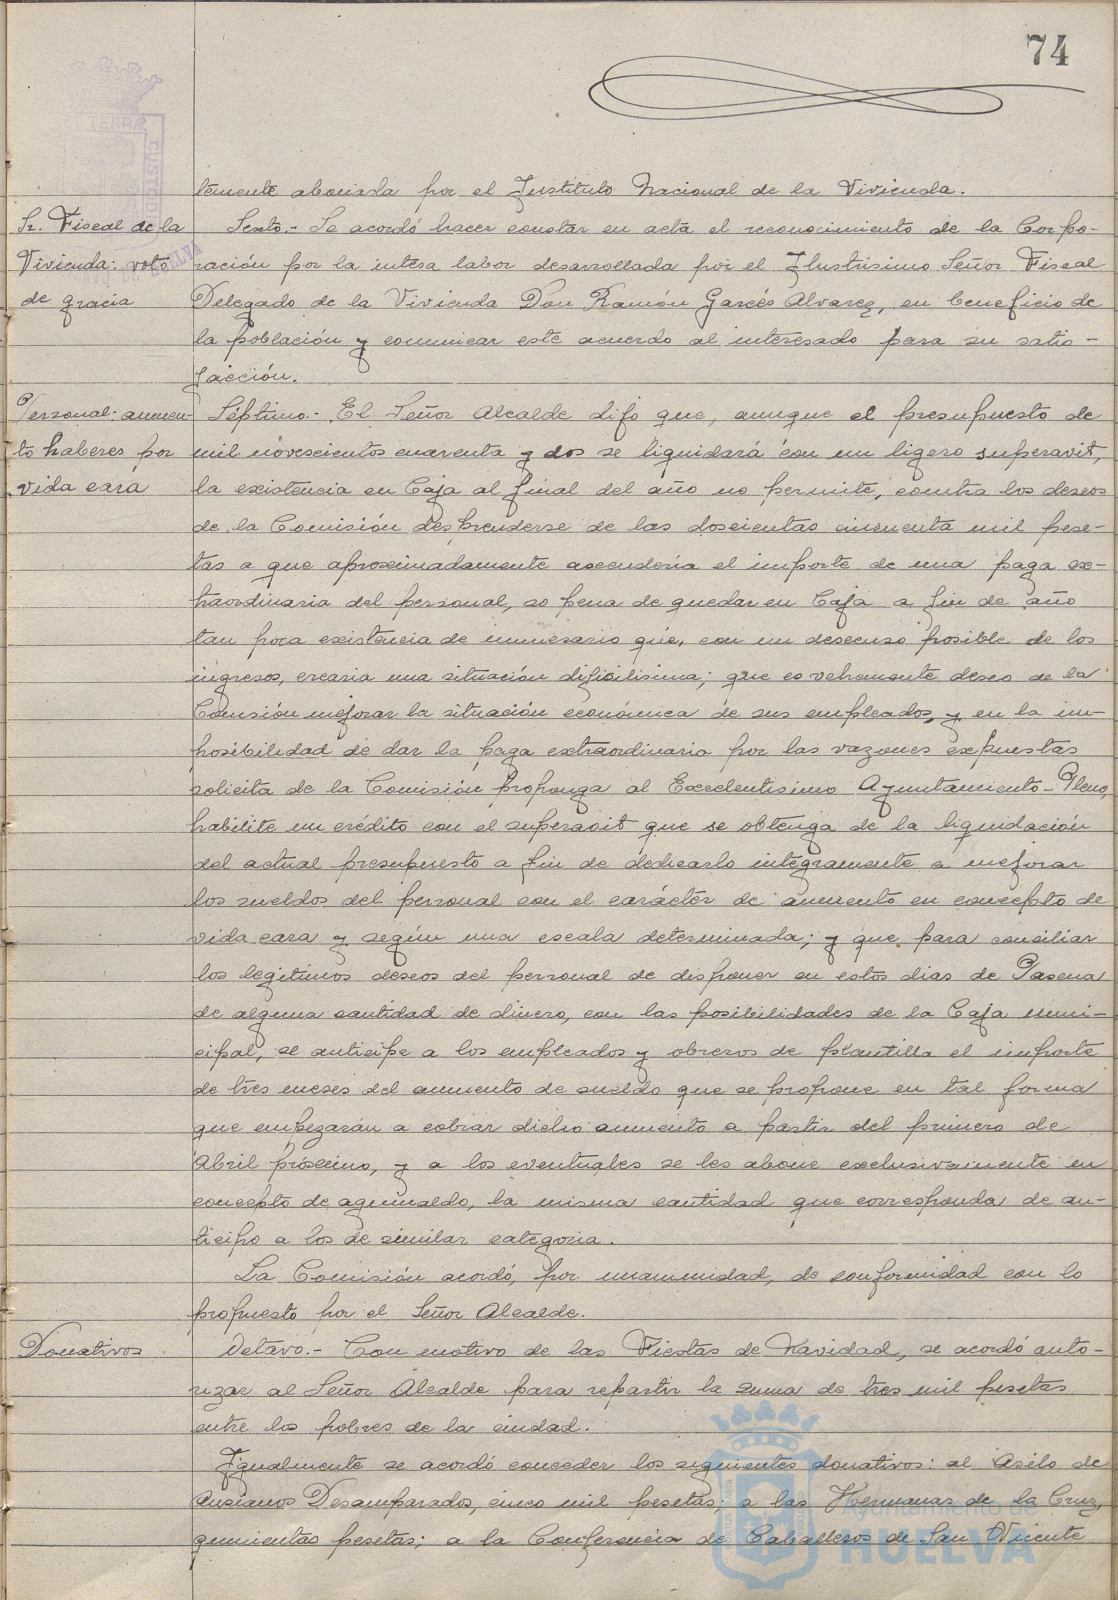 74
temente abonada por el Instituto Nacional de la Vivienda.
Sr. Fiscal de la
Vivienda: voto
de gracia
Sexto.- Se acordó hacer constar en acta el reconocimiento de la Corpo-
ración por la intesa labor desarrollada por el Ilustrisimo Señor Fiscal
Delegado de la Vivienda Don Ramón Garcés Alvarez, en beneficio de
la población y comunicar este acuerdo al interesado para su satis-
facción.
Personal: aumen-
to haberes por
vida cara
Séptimo.- El Señor Alcalde dijo que, aunque el presupuesto de
mil novescientos cuarenta y dos se liquidará con un ligero superavit,
la existencia en Caja al final del año no permite, contra los deseos
de la Comisión desprenderse de las doscientas cincuenta mil pese-
tas a que aproximadamente ascenderia el importe de una paga ex-
traordinaria del personal, so pena de quedar en Caja a fin de año
tan poca existencia de numerario que, con un descenso posible de los
ingresos, crearia una situación dificilisima; que es vehemente deseo de la
Comisión mejorar la situación económica de sus empleados, y en la im-
posibilidad de dar la paga extraordinaria por las razones expuestas
solicita de la Comisión proponga al Excelentisimo Ayuntamiento-Pleno,
habilite un crédito con el superavit que se obtenga de la liquidación
del actual presupuesto a fin de dedicarlo integramente a mejorar
los sueldos del personal con el carácter de aumento en concepto de
vida cara y según una escala determinada; y que para conciliar
los legitimos deseos del personal de disponer en estos dias de Pascua
de alguna cantidad de dinero, con las posibilidades de la Caja muni-
cipal, se anticipe a los empleados y obreros de plantilla el importe
de tres meses del aumento de sueldo que se propone en tal forma
que empezarán a cobrar dicho aumento a partir del primero de
Abril próximo, y a los eventuales se les abone exclusivamente en
concepto de aguinaldo, la misma cantidad que corresponda de an-
ticipo a los de similar categoria.
La Comisión acordó, por unanimidad, de conformidad con lo
propuesto por el Señor Alcalde.
Donativos
Octavo.- Con motivo de las Fiestas de Navidad, se acordó auto-
rizar al Señor Alcalde para repartir la suma de tres mil pesetas
entre los pobres de la ciudad.
Igualmente se acordó conceder los siguientes donativos: al Asilo de
Ancianos Desamparados, cinco mil pesetas; a las Hermanas de la Cruz,
quinientas pesetas; a la Conferencia de Caballeros de San Vicente
Ayuntamiento de
HUELVA